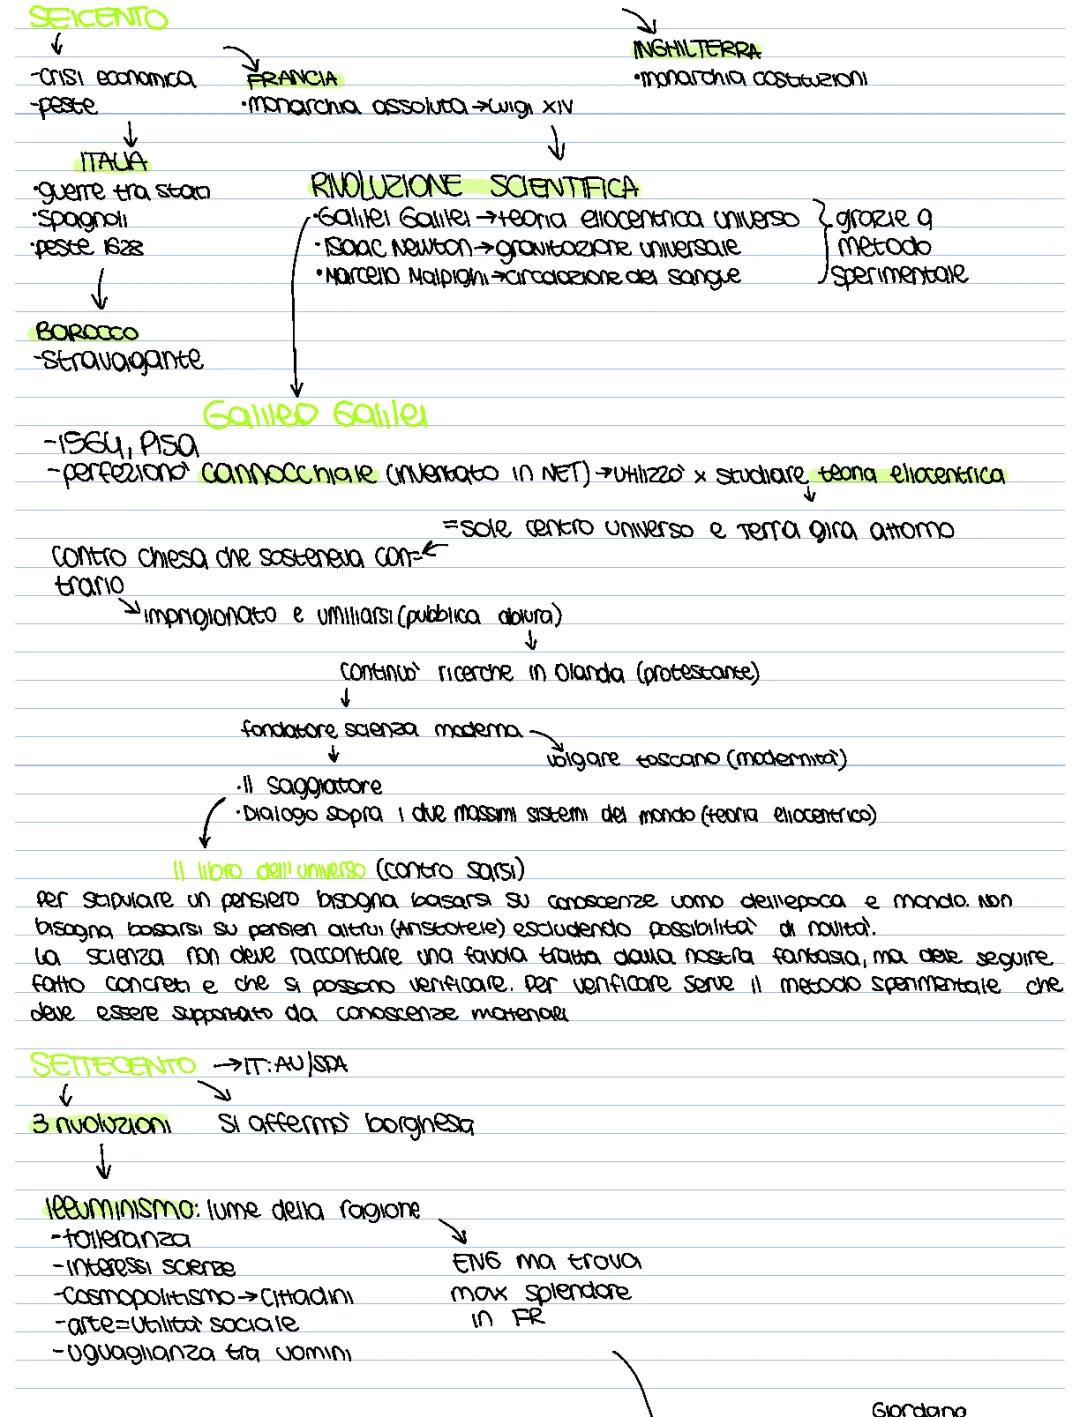 SEICENTO
-crisi economica
-peste
FRANCIA
•monarchia assoluta→Luigi XIV
INGHILTERRA
•monarchia costituzioni
ITALIA
•guerre tra stati
•spagnoli
•peste 1628
RIVOLUZIONE SCIENTIFICA
•Galilei Galilei→teoria eliocentrica universo
•Isaac Newton→gravitazione universale
•Marcello Malpighi→circolazione del sangue
grazie a
metodo
sperimentale
BAROCCO
-stravagante
Galileo Galilei
-1564, PISA
-perfezionò cannocchiale (inventato in NET)→utilizzò x studiare teoria eliocentrica
=sole centro universo e Terra gira attorno
contro chiesa che sosteneva con=
trario
imprigionato e umiliarsi (pubblica abiura)
continuò ricerche in Olanda (protestante)
fondatore scienza moderna
volgare toscano (modernità)
•Il saggiatore
•Dialogo sopra i due massimi sistemi del mondo (teoria eliocentrico)
Il libro dell'universo (contro sarsi)
Per stipulare un pensiero bisogna basarsi su conoscenze uomo dell'epoca e mondo. Non
bisogna basarsi su pensieri altrui (Aristotele) escludendo possibilità di novità.
La scienza non deve raccontare una favola tratta dalla nostra fantasia, ma deve seguire
fatto concreti e che si possono verificare. Per verificare serve il metodo sperimentale che
deve essere supportato da conoscenze materiali
SETTECENTO →IT: AU/SPA
3 rivoluzioni
si affermò borghesia
Illuminismo: lume della ragione
-tolleranza
-interessi scienze
-cosmopolitismo→cittadini
-arte=utilità sociale
-uguaglianza tra uomini
ENG ma trova
max splendore
in FR
Giordano